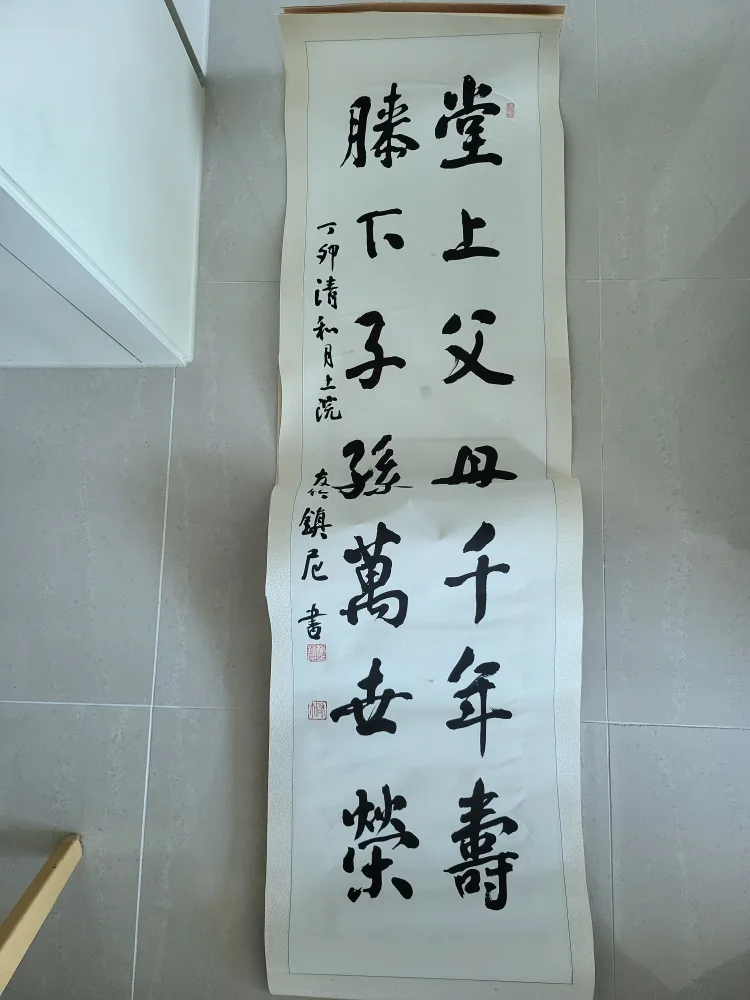 堂上父母千年壽
膝下子孫萬世榮
丁卯清和月上浣
鎮尼 書